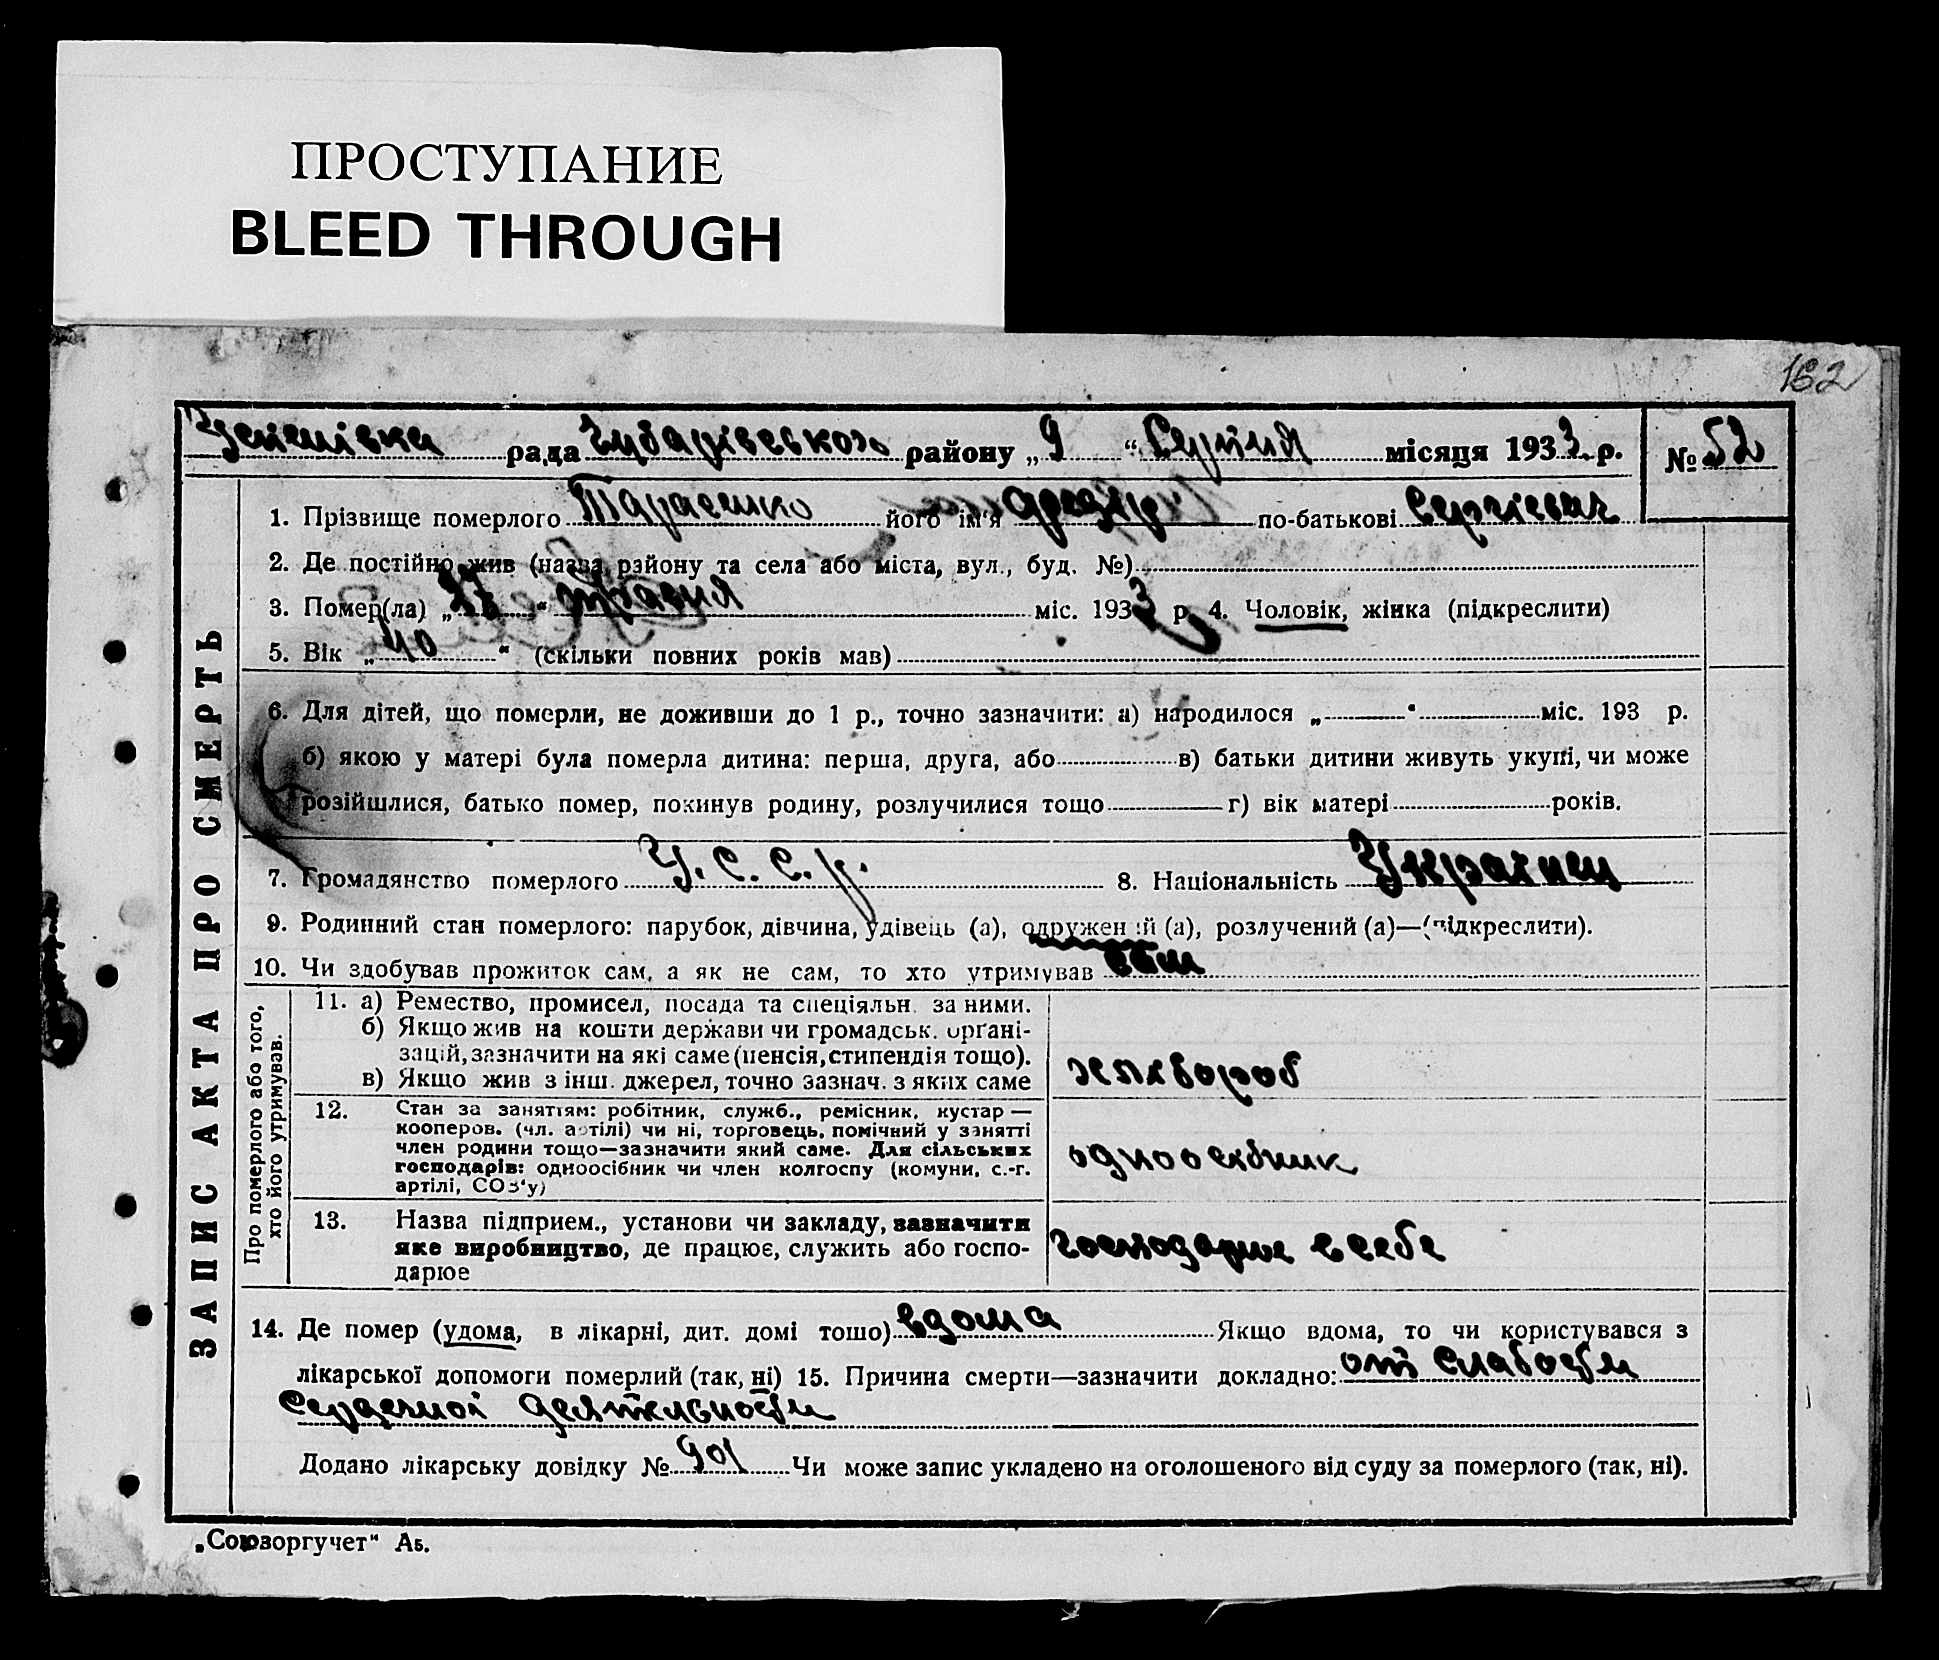 ПРОСТУПАНИЕ
BLEED THROUGH
162
рада Чубарівського району „ 9 “ Серпня місяця 1933 р. № 52
ЗАПИС АКТА ПРО СМЕРТЬ
1. Прізвище померлого Тарасенко його ім'я по-батькові Сергієвич
2. Де постійно жив (назва району та села або міста, вул., буд. №)
3. Помер(ла) „ 27 “ травня міс. 1933 р. 4. Чоловік, жінка (підкреслити)
5. Вік „ 40 “ (скільки повних років мав)
6. Для дітей, що померли, не доживши до 1 р., точно зазначити: а) народилося „ “ міс. 193 р.
б) якою у матері була померла дитина: перша, друга, або в) батьки дитини живуть укупі, чи може
розійшлися, батько помер, покинув родину, розлучилися тощо г) вік матері років.
7. Громадянство померлого У.С.С.р. 8. Національність Украінец
9. Родинний стан померлого: парубок, дівчина, удівець (а), одружений (а), розлучений (а)—(підкреслити).
10. Чи здобував прожиток сам, а як не сам, то хто утримував сам
Про померлого або того,
хто його утримував.
11. а) Ремество, промисел, посада та спеціяльн. за ними.
б) Якщо жив на кошти держави чи громадськ. органі-
зацій, зазначити на які саме (пенсія, стипендія тощо).
в) Якщо жив з інш. джерел, точно зазнач. з яких саме
хлібороб
12. Стан за заняттям: робітник, служб., ремісник, кустар —
кооперов. (чл. артілі) чи ні, торговець, помічний у занятті
член родини тощо—зазначити який саме. Для сільських
господарів: одноосібник чи член колгоспу (комуни, с.-г.
артілі, СОЗ'у)
одноосібник
13. Назва підприєм., установи чи закладу, зазначити
яке виробництво, де працює, служить або госпо-
дарює
господарює в себе
14. Де помер (удома, в лікарні, дит. домі тошо) вдома Якщо вдома, то чи користувався з
лікарської допомоги померлий (так, ні) 15. Причина смерти—зазначити докладно: от слабости
сердечної деятельности
Додано лікарську довідку № 901 Чи може запис укладено на оголошеного від суду за померлого (так, ні).
„Союзоргучет“ Аб.